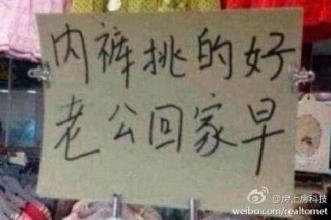 内裤挑的好
老公回家早
@房上房科技
weibo.com/realtomet